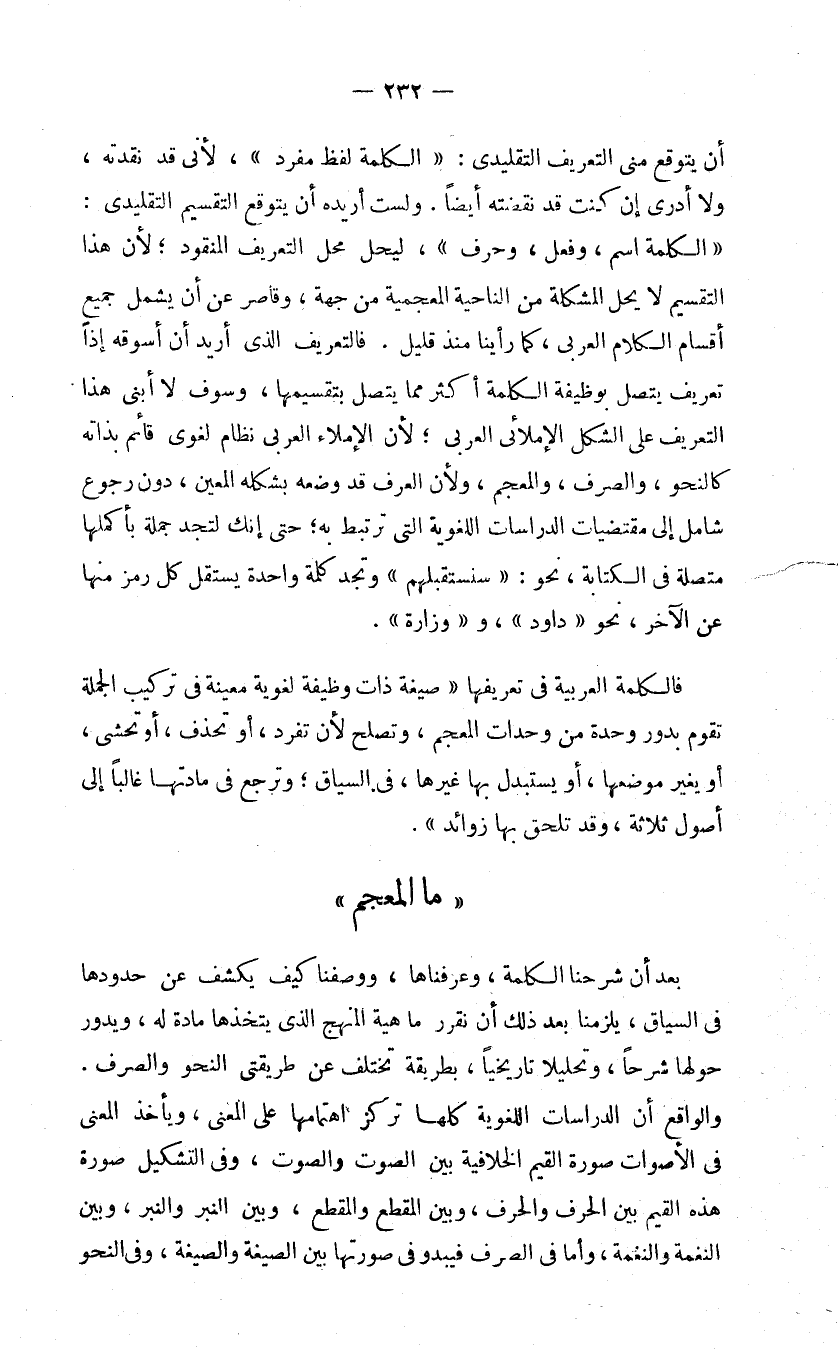 — ٢٣٢ —
أن يتوقع منى التعريف التقليدى : « الكلمة لفظ مفرد » ، لأنى قد نقدته ،
ولا أدرى إن كنت قد نقضته أيضاً . ولست أريده أن يتوقع التقسيم التقليدى :
« الكلمة اسم ، وفعل ، وحرف » ، ليحل محل التعريف المنقود ؛ لأن هذا
التقسيم لا يحل المشكلة من الناحية المعجمية من جهة ، وقاصر عن أن يشمل جميع
أقسام الكلام العربى ، كما رأينا منذ قليل . فالتعريف الذى أريد أن أسوقه إذاً
تعريف يتصل بوظيفة الكلمة أكثر مما يتصل بتقسيمها ، وسوف لا أبنى هذا
التعريف على الشكل الإملائى العربى ؛ لأن الإملاء العربى نظام لغوى قائم بذاته
كالنحو ، والصرف ، والمعجم ، ولأن العرف قد وضعه بشكله المعين ، دون رجوع
شامل إلى مقتضيات الدراسات اللغوية التى ترتبط به؛ حتى إنك لتجد جملة بأكملها
متصلة فى الكتابة ، نحو : « سنستقبلهم » وتجد كلمة واحدة يستقل كل رمز منها
عن الآخر ، نحو « داود » ، و « وزارة » .
فالكلمة العربية فى تعريفها « صيغة ذات وظيفة لغوية معينة فى تركيب الجملة
تقوم بدور وحدة من وحدات المعجم ، وتصلح لأن تفرد ، أو تحذف ، أو تحشى ،
أو يغير موضعها ، أو يستبدل بها غيرها ، فى السياق ؛ وترجع فى مادتها غالباً إلى
أصول ثلاثة ، وقد تلحق بها زوائد » .
« ما المعجم »
بعد أن شرحنا الكلمة ، وعرفناها ، ووصفنا كيف يكشف عن حدودها
فى السياق ، يلزمنا بعد ذلك أن نقرر ما هية المنهج الذى يتخذها مادة له ، ويدور
حولها شرحاً ، وتحليلا تاريخياً ، بطريقة تختلف عن طريقتى النحو والصرف .
والواقع أن الدراسات اللغوية كلها تركز اهتمامها على المعنى ، ويأخذ المعنى
فى الأصوات صورة القيم الخلافية بين الصوت والصوت ، وفى التشكيل صورة
هذه القيم بين الحرف والحرف ، وبين المقطع والمقطع ، وبين النبر والنبر ، وبين
النغمة والنغمة ، وأما فى الصرف فيبدو فى صورتها بين الصيغة والصيغة ، وفى النحو